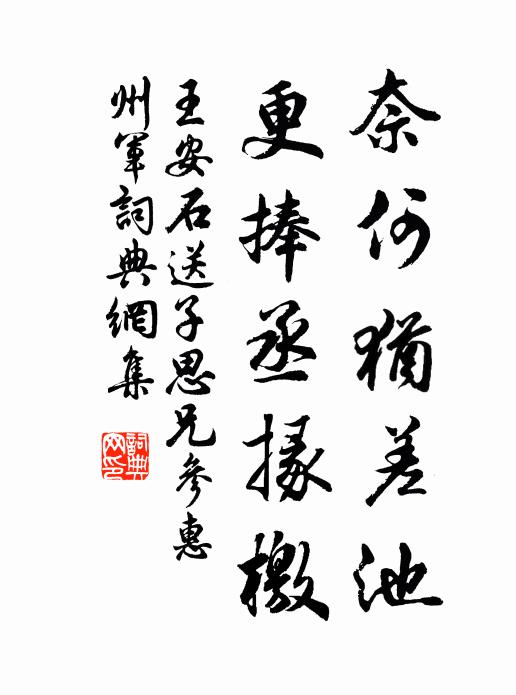 奈何猶差池
更捧丞掾檄
王安石送子思兄參惠
州軍詞典網集
詞典網印